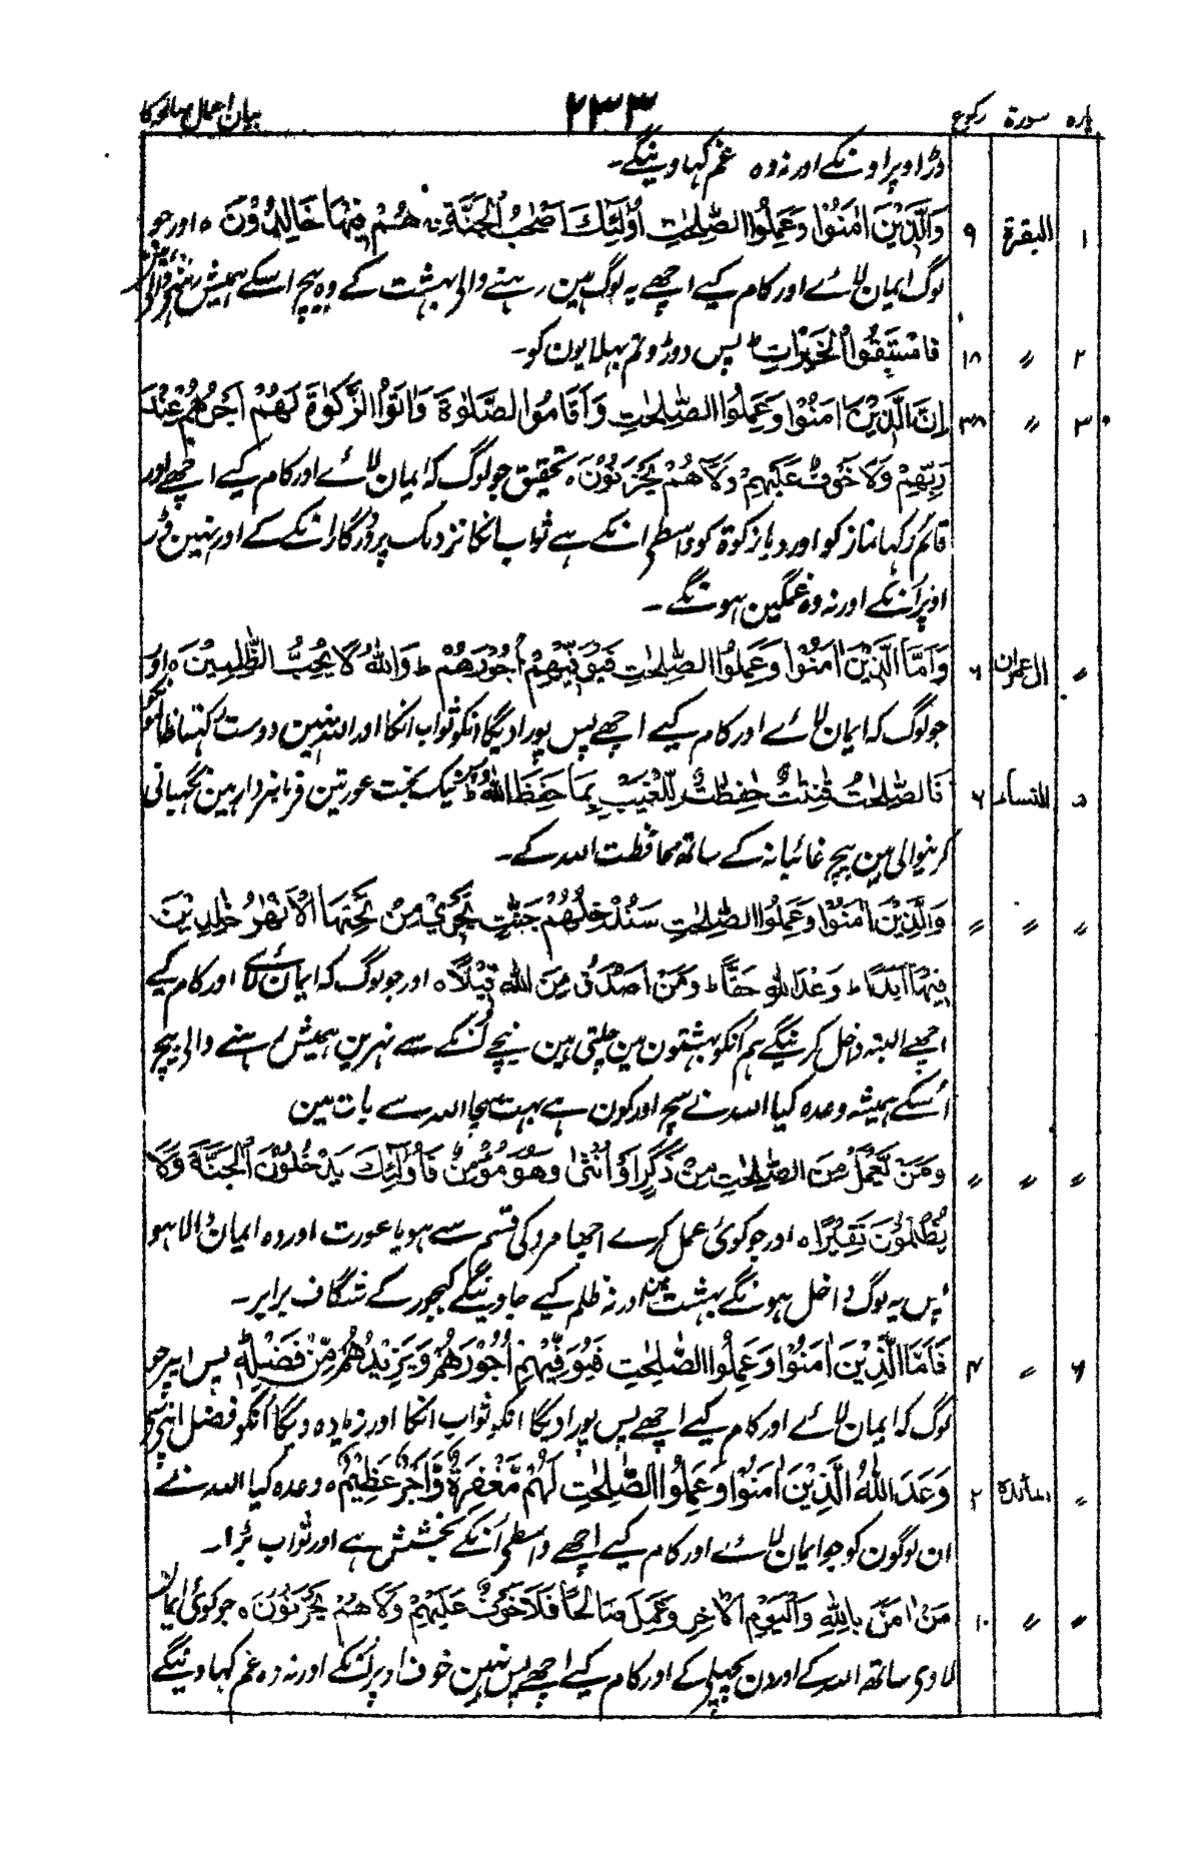 پاره سورة رکوع ۲۳۳ بیان اعمال صالحہ کا
ڈر اوپر اونکے اور نہ وہ غم کہاوینگے۔
۱ البقرة ۹ وَالَّذِيْنَ اٰمَنُوْا وَعَمِلُوا الصّٰلِحٰتِ اُولٰٓئِكَ اَصْحٰبُ الْجَنَّةِ هُمْ فِيْهَا خَالِدُوْنَ ہ اور جو
لوگ ایمان لائے اور کام کیے اچھے یہ لوگ ہین رہنے والی بہشت کے وہ بیچ اسکے ہمیش رہنے والے
۲ 〃 ۱۸ فَاسْتَبِقُوا الْخَيْرَاتِ ط پس دوڑو تم بہلایون کو۔
۳ 〃 ۳۸ اِنَّ الَّذِيْنَ اٰمَنُوْا وَعَمِلُوا الصّٰلِحٰتِ وَاَقَامُوا الصَّلٰوةَ وَاٰتَوُا الزَّكٰوةَ لَهُمْ اَجْرُهُمْ عِنْدَ
رَبِّهِمْ وَلَا خَوْفٌ عَلَيْهِمْ وَلَا هُمْ يَحْزَنُوْنَ ہ تحقیق جو لوگ کہ ایمان لائے اور کام کیے اچھے اور
قائم رکہا نماز کو اور دیا زکوة کو واسطے انکے ہے ثواب انکا نزدیک پروردگار انکے کے اور نہین ڈر
اوپر اُنکے اور نہ وہ غمگین ہونگے ۔
〃 اٰل عمران ۶ وَاَمَّا الَّذِيْنَ اٰمَنُوْا وَعَمِلُوا الصّٰلِحٰتِ فَيُوَفِّيْهِمْ اُجُوْرَهُمْ ط وَاللّٰهُ لَا يُحِبُّ الظّٰلِمِيْنَ ہ اور
جو لوگ کہ ایمان لائے اور کام کیے اچھے پس پورا دیگا انکو ثواب انکا اور اللہ نہین دوست رکہتا ظالمونکو
۵ النساء ۶ فَالصّٰلِحٰتُ قٰنِتٰتٌ حٰفِظٰتٌ لِّلْغَيْبِ بِمَا حَفِظَ اللّٰهُ ط پس نیک بخت عورتین فرمانبردار ہین نگہبانی
کرنیوالی ہین بیچ غائبانہ کے ساتھ محافظت اللہ کے۔
〃 〃 〃 وَالَّذِيْنَ اٰمَنُوْا وَعَمِلُوا الصّٰلِحٰتِ سَنُدْخِلُهُمْ جَنّٰتٍ تَجْرِيْ مِنْ تَحْتِهَا الْاَنْهٰرُ خٰلِدِيْنَ
فِيْهَا اَبَدًا ط وَعْدَ اللّٰهِ حَقًّا ط وَمَنْ اَصْدَقُ مِنَ اللّٰهِ قِيْلًا ہ اور جو لوگ کہ ایمان لائے اور کام کیے
اچھے البتہ داخل کرینگے ہم اُنکو بہشتون مین چلتی ہین نیچے اُنکے سے نہرین ہمیش رہنے والی بیچ
اُسکے ہمیشہ وعدہ کیا اللہ نے سچ اور کون ہے بہت سچا اللہ سے بات مین
〃 〃 〃 وَمَنْ يَّعْمَلْ مِنَ الصّٰلِحٰتِ مِنْ ذَكَرٍ اَوْ اُنْثٰى وَهُوَ مُؤْمِنٌ فَاُولٰٓئِكَ يَدْخُلُوْنَ الْجَنَّةَ وَلَا
يُظْلَمُوْنَ نَقِيْرًا ہ اور جو کوئی عمل کرے اچھا مرد کی قسم سے ہو یا عورت اور وہ ایمان والا ہو
پس یہ لوگ داخل ہونگے بہشت مین اور نہ ظلم کیے جاوینگے کھجور کے شگاف برابر۔
۶ 〃 ۴ فَاَمَّا الَّذِيْنَ اٰمَنُوْا وَعَمِلُوا الصّٰلِحٰتِ فَيُوَفِّيْهِمْ اُجُوْرَهُمْ وَيَزِيْدُهُمْ مِّنْ فَضْلِهٖ پس اپر جو
لوگ کہ ایمان لائے اور کام کیے اچھے پس پورا دیگا انکو ثواب انکا اور زیادہ دیگا اُنکو فضل اپنی سے
〃 مائدة ۲ وَعَدَ اللّٰهُ الَّذِيْنَ اٰمَنُوْا وَعَمِلُوا الصّٰلِحٰتِ لَهُمْ مَّغْفِرَةٌ وَّاَجْرٌ عَظِيْمٌ ہ وعدہ کیا اللہ نے
ان لوگون کو جو ایمان لائے اور کام کیے اچھے واسطے اُنکے بخشش ہے اور ثواب بڑا۔
〃 〃 ۱۰ مَنْ اٰمَنَ بِاللّٰهِ وَالْيَوْمِ الْاٰخِرِ وَعَمِلَ صَالِحًا فَلَا خَوْفٌ عَلَيْهِمْ وَلَا هُمْ يَحْزَنُوْنَ ہ جو کوئی ایمان
لاوی ساتھ اللہ کے اور دن پچھلی کے اور کام کیے اچھے پس نہین خوف اوپر اُنکے اور نہ وہ غم کہاوینگے